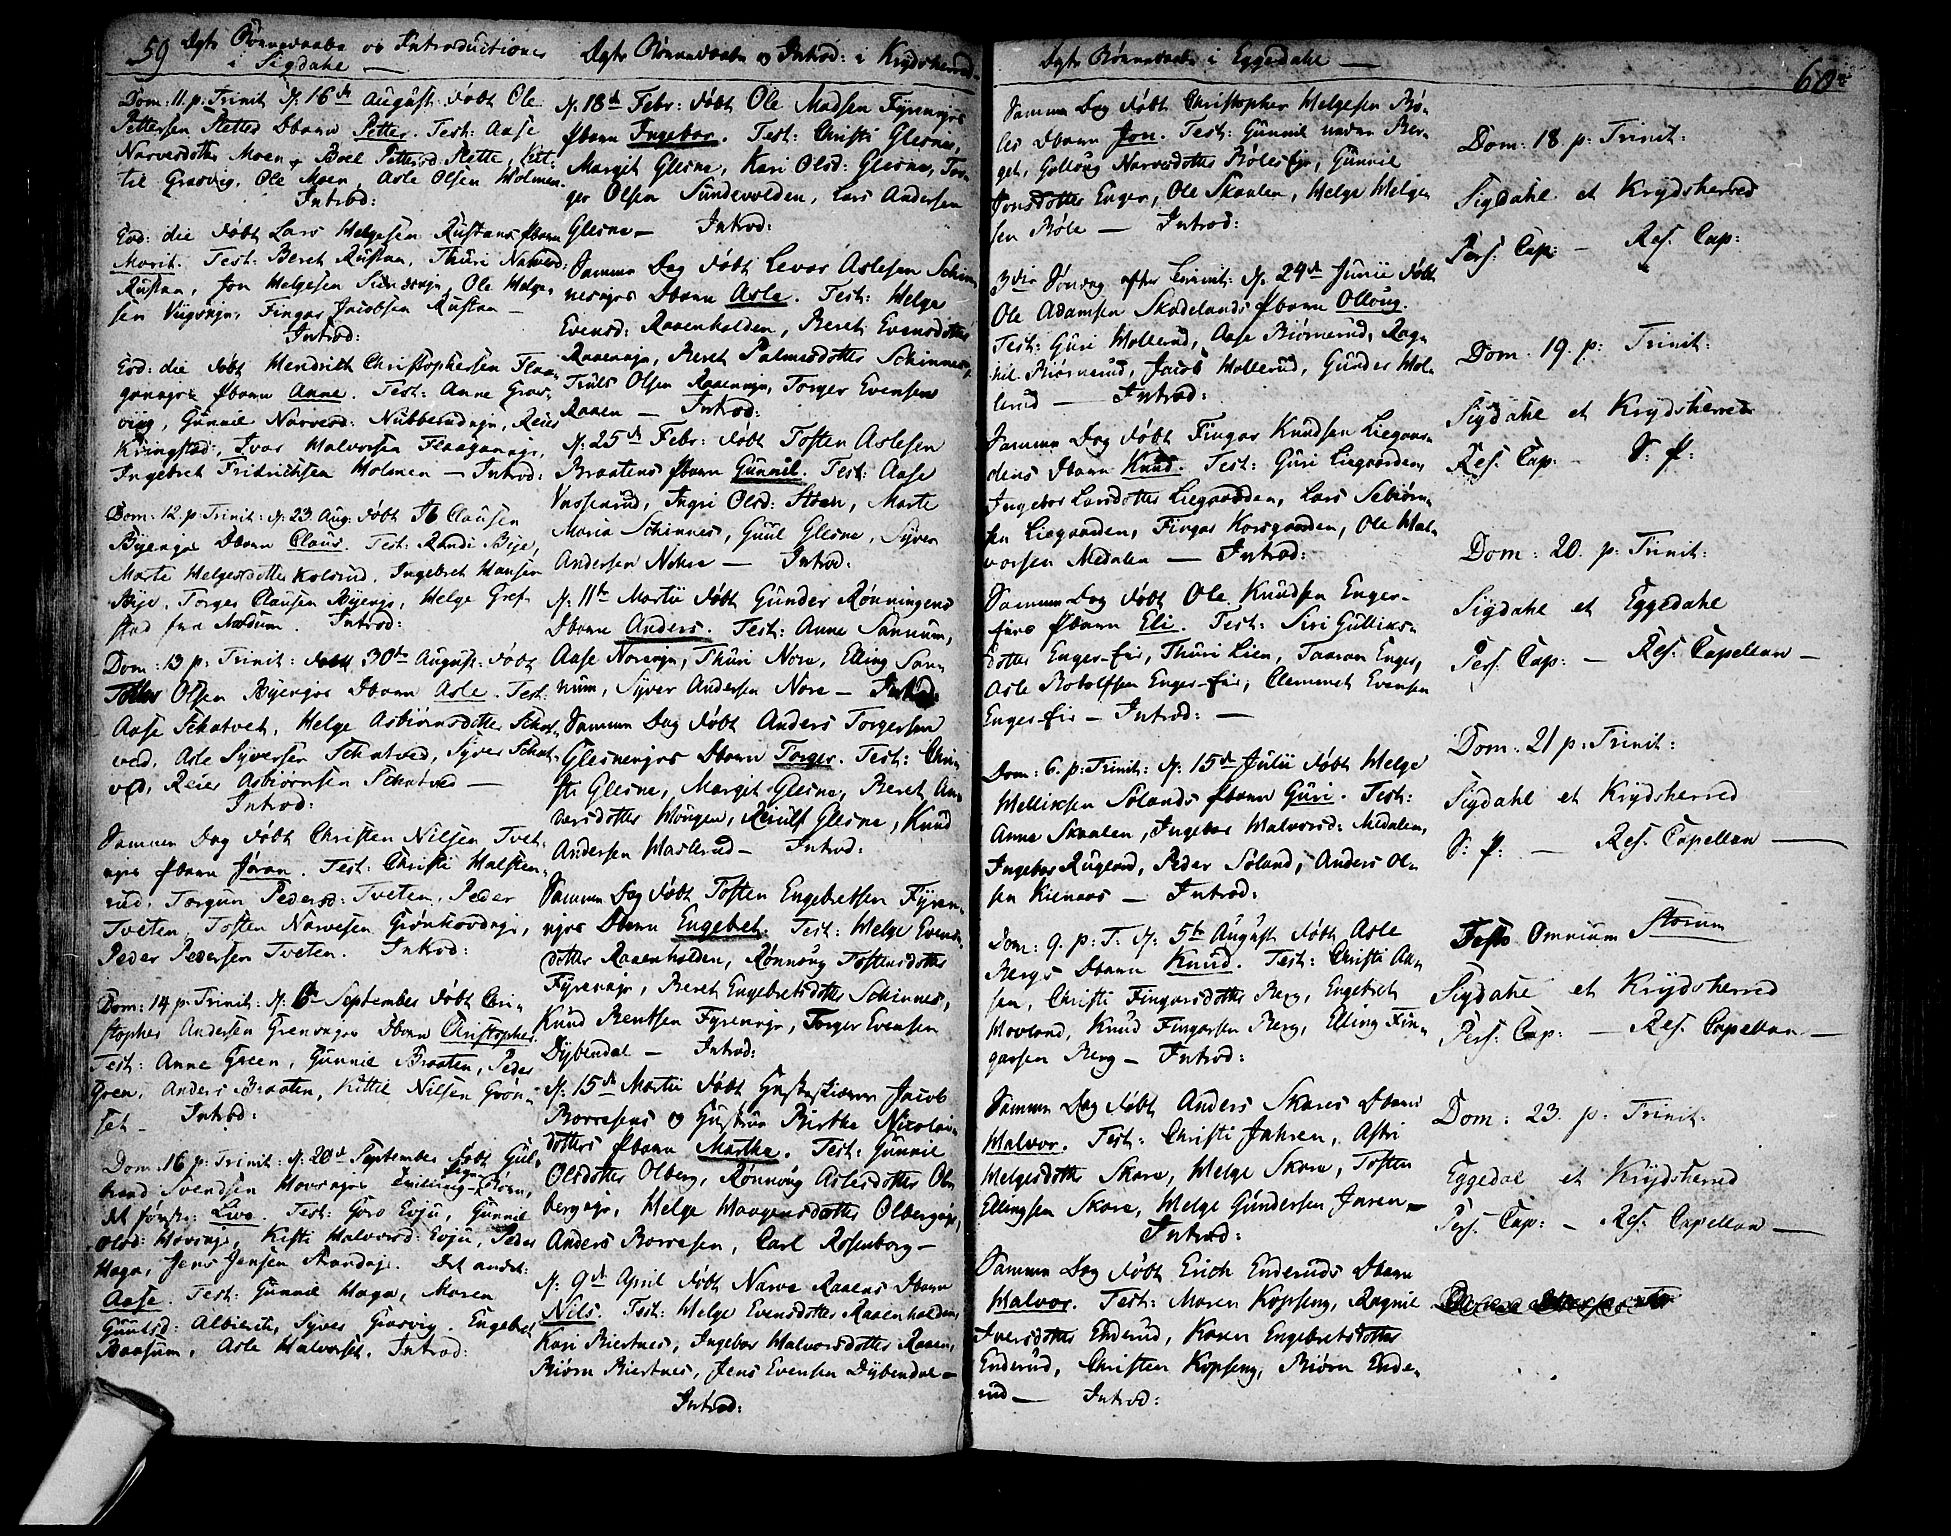 59 Dgts Børnedaabe og Introductioner
i Sigdahl —
Dom: 11. p: Trinit: d: 16de August: døbt Ole
Pettersen Slettes Dbarn Petter. Test: Aase
Narvesdotter Moen, Boel Pettersd: Slette, Kit-
til Grasvig, Ole Moen, Asle Olsen Holmen.
Introd:
Eod: die døbt Lars Helgesen Rustans Pbarn
Marit. Test: Beret Rustan, Thuri Narvesd:
Rustan, Jon Helgesen, Ole Helge-
sen, Fingar Jacobsen Rustan —
Introd:
Eod: die døbt Hendrich Christophersen Flaa-
Pbarn Anne. Test: Anne Gras-
viig, Gunnil Narvesd: Nubberudeje, Reier
Kringstad, Ivar Halvorsen Flaaganeje,
Ingebret Fridrichsen Holmen — Introd:
Dom: 12. p: Trinit: d: 23 Aug: døbt Ib Clausen
Byeneje Dbarn Claus. Test: Randi Bye,
Marte Helgesdotter Kolsrud, Ingebret Hansen
Bye, Torger Clausen Byeneje, Helge Gref-
stad fra Modum. Introd:
Dom: 13 p: Trinit: 30te August: døbt
Olsen Byenejes Dbarn Asle. Test:
Aase Schatvet, Helge Asbiørnsdotter Schat-
ved, Asle Syversen Schatved, Syver Schat-
ved, Reier Asbiørnsen Schatved —
Introd:
Samme Dag døbt Christen Nilsen Tvet-
Pbarn Jøran. Test: Christi Halsten-
rud, Torgun Pedersd: Tveten, Peder
Tveten, Tosten Narvesen Grønhovdeje,
Peder Pedersen Tveten. Introd:
Dom: 14 p: Trinit: d: 6te September døbt Chri-
stopher Andersen Grenenejes Dbarn Christopher.
Test: Anne Green, Gunnil Braaten, Peder
Green, Anders Braaten, Kittil Nilsen Grøn-
set — Introd:
Dom: 16 p: Trinit: d: 20de September døbt Gul-
brand Svendsen Hovsejes Tvilling-Pbørn,
det første: Live. Test: Goro Evju, Gunnil
Olsd: Hovseje, Kisti Halvorsd: Evju, Peder
Haga, Jens Jensen Strandeje. Det andet:
Aase. Test: Gunnil Haga, Maren
Guulsd: Albiert, Syver Grasvig, Engebret
Baasum, Asle Halvorset. Introd:
Dgts Børnedaabe og Introd: i Krydsherred
d: 18de Febr: døbt Ole Madsen Fyrenejes
Pbarn Ingebor. Test: Christi Glesne,
Margit Glesne, Kari Olsd: Glesne, Tor-
ger Olsen Sundevolden, Lars Andersen
Glesne — Introd:
Samme Dag døbt Levor Aslesen Schin-
nesejes Dbarn Asle. Test: Helge
Evensd: Raaenholden, Beret Evensdotter
Raaeneje, Beret Palmesdotter Schinnes,
Truls Olsen Raaeneje, Torger Evensen
Raaen — Introd:
d: 25de Febr: døbt Tosten Aslesen
Braatens Pbarn Gunnil. Test: Aase
Vasserud, Ingri Olsd: Støen, Marte
Maria Schinnes, Guul Glesne, Syver
Andersen Nokre — Introd:
d: 11te Martii døbt Gunder Rønningens
Dbarn Anders. Test: Anne Sannum,
Aase Noreeje, Thuri Nore, Elling San-
num, Syver Andersen Nore — Introd:
Samme Dag døbt Anders Torgersen
Glesnenejes Dbarn Torger. Test: Chri-
sti Glesne, Margit Glesne, Beret An-
dersdotter Haugen, Reiulf Glesne, Knud
Andersen Haslerud — Introd:
Samme Dag døbt Tosten Engebretsen Fyren-
ejes Dbarn Engebret. Test: Helge Evens-
dotter Raaenholden, Rønnoug Tostensdotter
Fyreneje, Beret Engebretsdotter Schinnes,
Knud Bentsen Fyreneje, Torger Evensen
Dybendal — Introd:
d: 15de Martii døbt Giestgiveren Jacob
Borresens og Hustrue Birthe Nicolai-
dotters Pbarn Marthe. Test: Gunnil
Olsdotter Olberg, Rønnoug Aslesdotter Ol-
bergeje, Helge Haagensdotter Olbergeje,
Anders Borresen, Carl Rosenborg —
d: 9de April døbt Narve Raaens Dbarn
Nils. Test: Helge Evensdotter Raaenholden,
Kari Biertnes, Ingebor Halvorsdotter Raaen,
Biørn Biertnes, Jens Evensen Dybendal —
Introd:
Dgts Børnedaabe i Eggedahl —
Samme Dag døbt Christopher Helgesen Bø-
les Dbarn Jon. Test: Gunnil nedre Ber-
get, Golloug Narvesdotter Bøleseje, Gunnil
Jonsdotter Enger, Ole Skaalen, Helge Helge-
sen Bøle — Introd:
3die Søndag efter Trinit: d: 24de Junii døbt
Ole Adamsen Skadelands Pbarn Olloug.
Test: Guri Hollerud, Aase Biørnerud, Rag-
nil Biørnerud, Jacob Hollerud, Gunder Hol-
lerud — Introd:
Samme Dag døbt Fingar Knudsen Liegaar-
dens Dbarn Knud. Test: Guri Liegaarden,
Ingebor Larsdotter Liegaarden, Lars Sebiørn-
sen Liegaarden, Fingar Korsgaarden, Ole Hal-
vorsen Medalen — Introd:
Samme Dag døbt Ole Knudsen Enger-
Pbarn Eli. Test: Siri Gulliks-
dotter Enger-, Thuri Lien, Taaran Enger,
Asle Rotolfsen Enger-, Clement Evensen
Enger- — Introd: —
Dom: 6. p: Trinit: d: 15de Julii døbt Helge
Helliksen Solands Pbarn Guri. Test:
Anne Skaalen, Ingebor Halvorsd: Medalen,
Ingebor Rugland, Peder Soland, Anders Ol-
sen Kienaas — Introd:
Dom: 9. p: T: d: 5te August døbt Asle
Bergs Dbarn Knud. Test: Christi
Christi Fingarsdotter Berg, Engebret
Hovland, Knud Fingarsen Berg, Elling Fin-
garsen Berg — Introd:
Samme Dag døbt Anders Skares Dbarn
Halvor. Test: Christi Jahren, Astri
Helgesdotter Skare, Helge Skare, Tosten
Ellingsen Skare, Helge Gundersen Jaren —
Introd:
Samme Dag døbt Erich Enderuds Dbarn
Halvor. Test: Maren Kopseng, Ragnil
Iversdotter Enderud, Karen Engebretsdotter
Enderud, Christen Kopseng, Biørn Ende-
rud — Introd:
60
Dom: 18. p: Trinit:
Sigdahl et Krydsherred
Pers: Cap: — Res: Cap:
Dom: 19. p: Trinit:
Sigdahl et Krydsherred
Res: Cap: — S: P:
Dom: 20. p: Trinit:
Sigdahl et Eggedahl
Pers: Cap: — Res: Capellan —
Dom: 21 p: Trinit:
Sigdahl et Krydsherred
S: P: — Res: Capellan —
Festo Omnium Storum
Sigdahl et Krydsherred
Pers: Cap: — Res: Capellan —
Dom: 23. p: Trinit:
Eggedal et Krydsherred
Pers: Cap: — Res: Capellan —